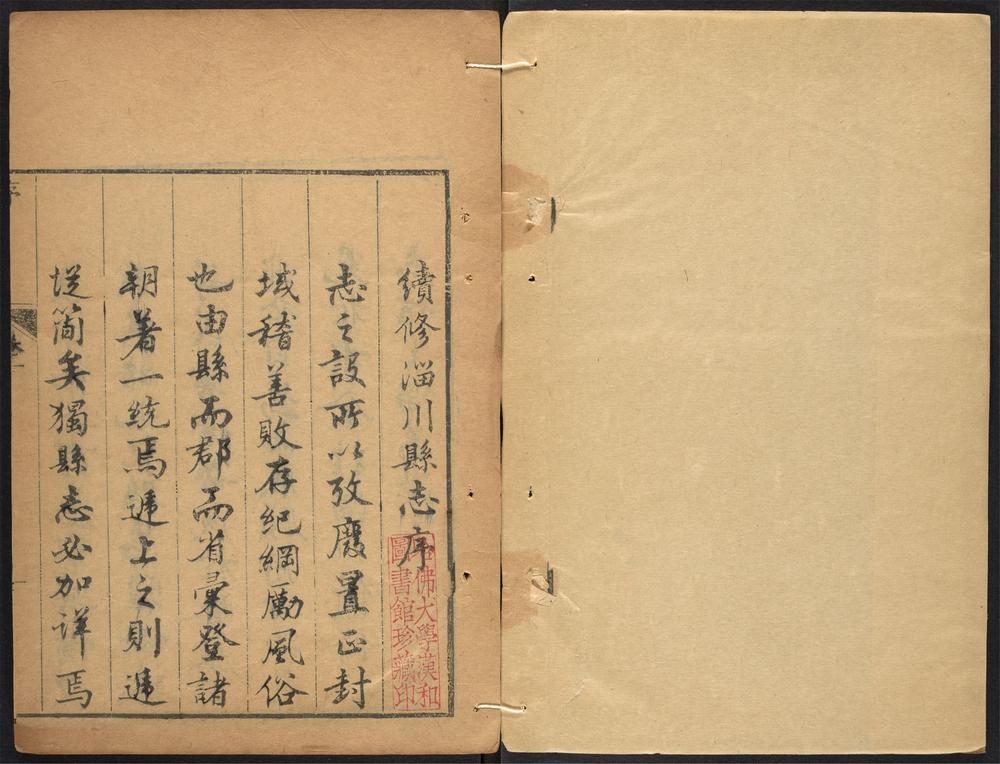 續修淄川縣志序
志之設所以攷廢置正封
域稽善敗存紀綱勵風俗
也由縣而郡而省彙登諸
朝著一統焉遞上之則遞
從簡矣獨縣志必加詳焉
佛大學漢和
圖書館珍藏印